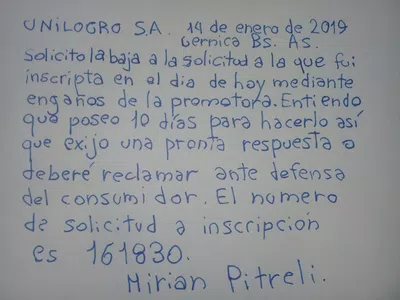 UNILOGRO S.A. 14 de enero de 2019
Gernica Bs. As.
Solicito la baja a la solicitud a la que fui
inscripta en el dia de hoy mediante
engaños de la promotora. Entiendo
que poseo 10 días para hacerlo así
que exijo una pronta respuesta o
deberé reclamar ante defensa
del consumidor. El numero
de solicitud a inscripción
es 161830.
Mirian Pitreli.